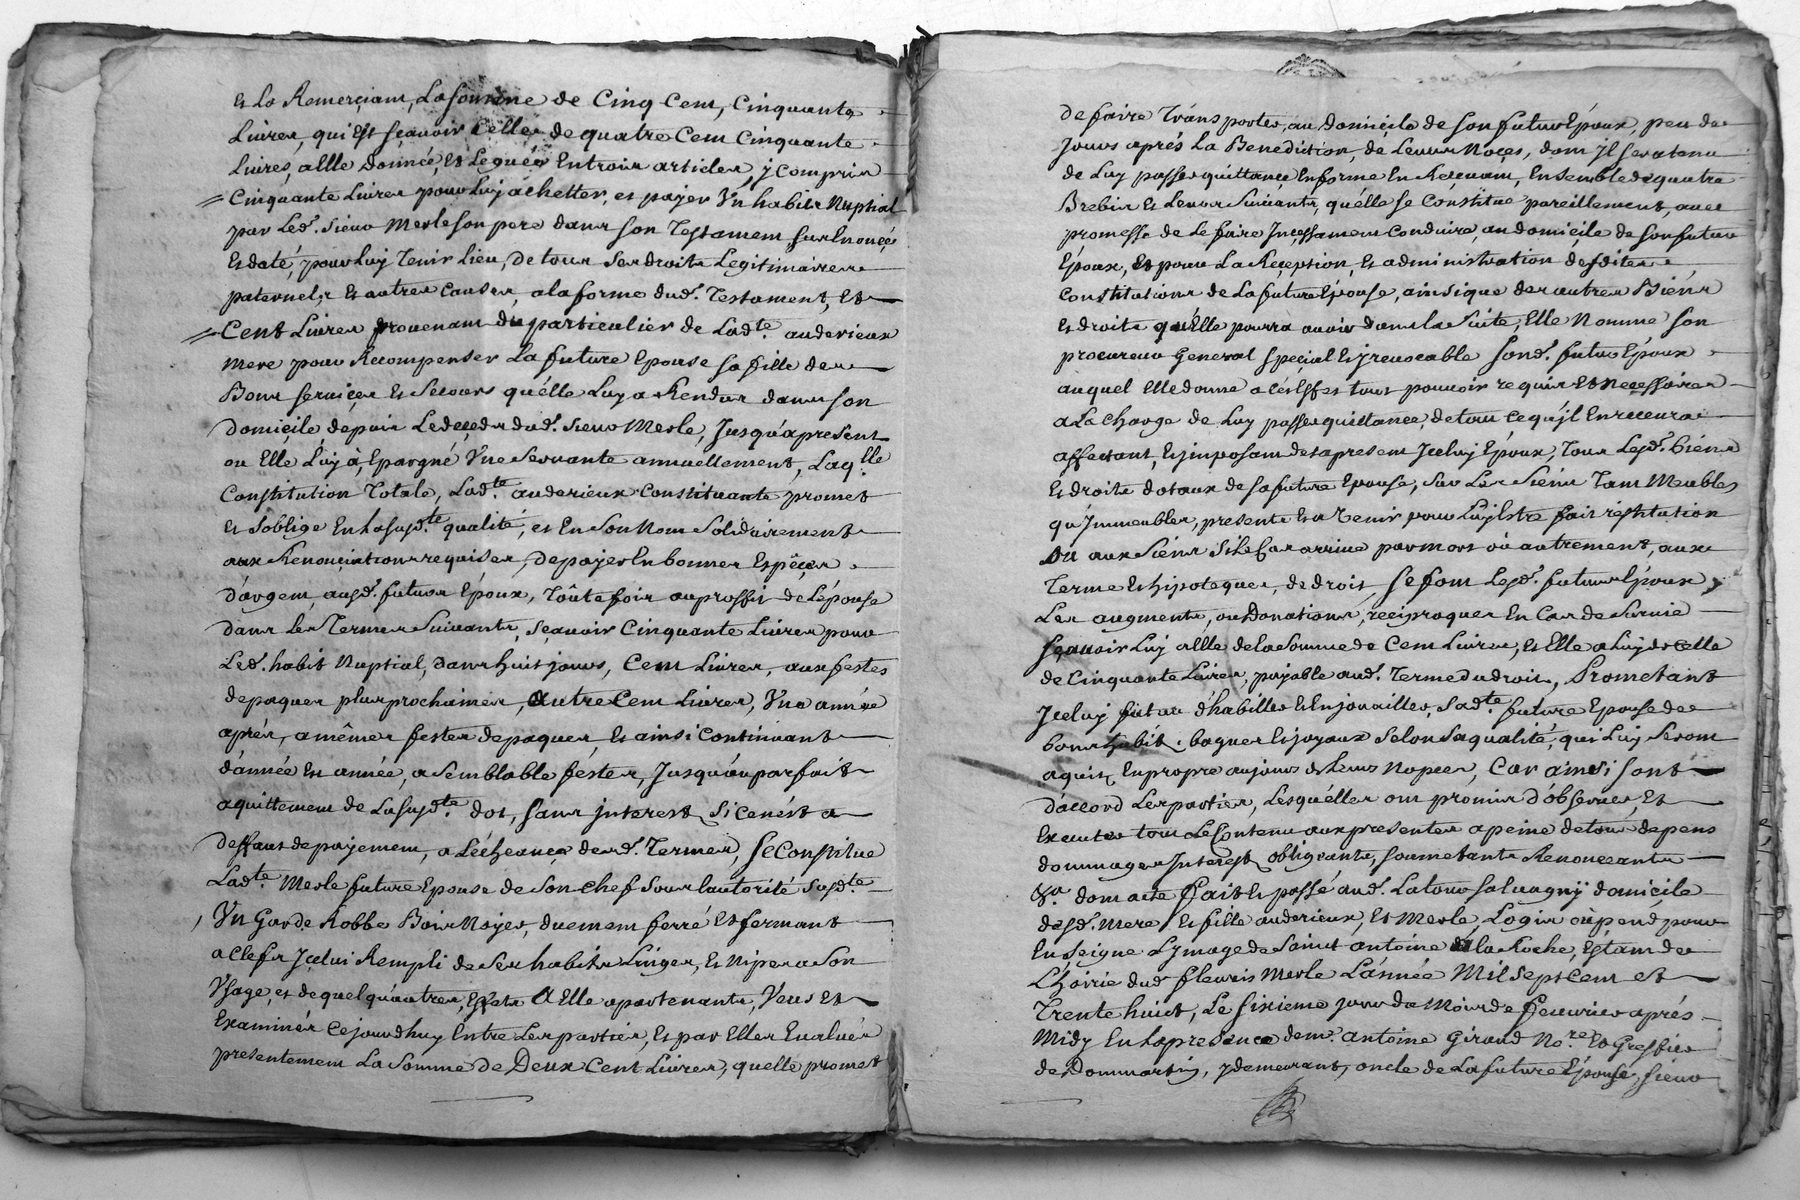 Et la Remerciant, La somme de Cinq Cent, Cinquante
Livres, qui Est sçavoir Celle de quatre Cent Cinquante
Livres, a Elle donnée, Et Leguée En trois articles, y Compris
Cinquante Livres pour Luy achetter, et payer Un habit Nuptial
par Led. sieur Merle son pere dans son Testament sus Enoncé
Et daté, pour Luy Tenir Lieu, de tous ses droits Legitimaires
paternels Et autres Causes, a la forme dud. Testament, Et
Cent Livres provenant du particulier de Lad.te auderieux
Mere pour Recompenser La future Epouse sa fille des
Bons services Et Secours qu'élle Luy a Rendus dans son
domicile depuis Le deceds dud. sieur Merle, Jusqu'apresent
ou Elle Luy à, Epargné Une Servante annuellement, Laq.lle
Constitution Totale, Lad.te auderieux Constituante promet
Et s'oblige En La susd.te qualité, et En Son Nom Solidairement
aux Renonciations requises, de payer En bonnes Espêces
d'argent, ausd. futurs Epoux, Toûte fois au proffit de L'épouse
dans Les Termes Suivants, sçavoir Cinquante Livres pour
Led. habit Nuptial, dans huit jours, Cent Livres, aux festes
de paques plus prochaines, autre Cent Livres, Une année
aprés, a mêmes festes de paques, Et ainsi Continuant
d'année En année, a Semblable festes, Jusqu'au parfait
aquittement de La susd.te dot, sans interest Si ce n'ést a
deffaut de payement, a L'écheance desd. Termes, se Constitue
Lad.te Merle future Epouse de Son chef Sous l'autorité susd.te
Un Garde Robbe Bois Noyer, duement ferré Et fermant
a Clefs Jcelui Rempli de Ses habits Linges, Et Nipes a Son
Usage, et de quelqu'autres, Effets a Elle apartenants, Veus Et
Examinés Cejourdhuy Entre Les parties, Et par Elles Evalués
presentement La Somme de Deux Cent Livres, quelle promet
de faire Transporter, au domicile de son futur Epoux, peu de
Jours aprés La Benediction, de Leurs Noçes, dont Jl sera tenu
de Luy passer quittance En forme En Recevant, Ensemble de quatre
Brebis Et Leurs Suivants, qu'élle se Constitue pareillement, avec
promesse de Le faire Jncessament Conduire, au domicile de son futur
Epoux, Et pour La Reception, Et administration desdites
Constitutions de La future Epouse, ainsi que des autres Biéns
Et droits qu'Elle pourra avoir dans la Suite, Elle Nomme Son
procureur General special Et jrrevocable Sond. futur Epoux
auquel Elle donne a cés Effets tout pouvoir requis Et Necessaires
a La Charge de Luy passer quittance, de tout ce qu'jl En recevra
affectant, Et jmposant des apresent Jceluy Epoux, Tous Lesd. biéns
Et droits dotaux de sa future Epouse, Sur Les Siéns Tant Meubles
qu'Jmmeubles, presents Et a Venir pour Luy Estre fait réstitution
ou aux Siéns Si Le Cas arrive par mort ou autrement, aux
Terme Et hipoteques, de droit, se font Lesd. futurs Epoux
Les augments, ou Donations, reciproques En Cas de Survie
sçavoir Luy a Elle de la Somme de Cent Livres, et Elle a Luy de Celle
de Cinquante Livres, payable aud. Terme du droit, Promettant
Jceluy futur d'habiller Et Enjouailler, Sad.te future Epouse de
bons habits, bagues Et joyaux Selon Sa qualité, qui Luy Seront
aquis En propre au jour de Leurs Nopces, Car ainsi Sont
d'accord Les parties, Lesquélles ont promis d'observer, Et
Executer tout Le Contenu aux presentes a peine de tous depens
dommages Jnterest obligeants, soumetants Renonceants
&a. dont acte Fait Et passé aud. Latour Salvagny domicile
desd. Mere Et fille auderieux, Et Merle, Logis où pend pour
Enseigne L'ymage de Saint antoine de la Roche, Estant de
L'hoirie dud. fleuris Merle L'année Mil sept cent et
Trente huict, Le Sixieme jour du Mois de fevrier aprés
Midy En la presence de m.e antoine Giraud No.re Et Greffier
de Dommartin, y demeurant, oncle de La future Epouse, sieur